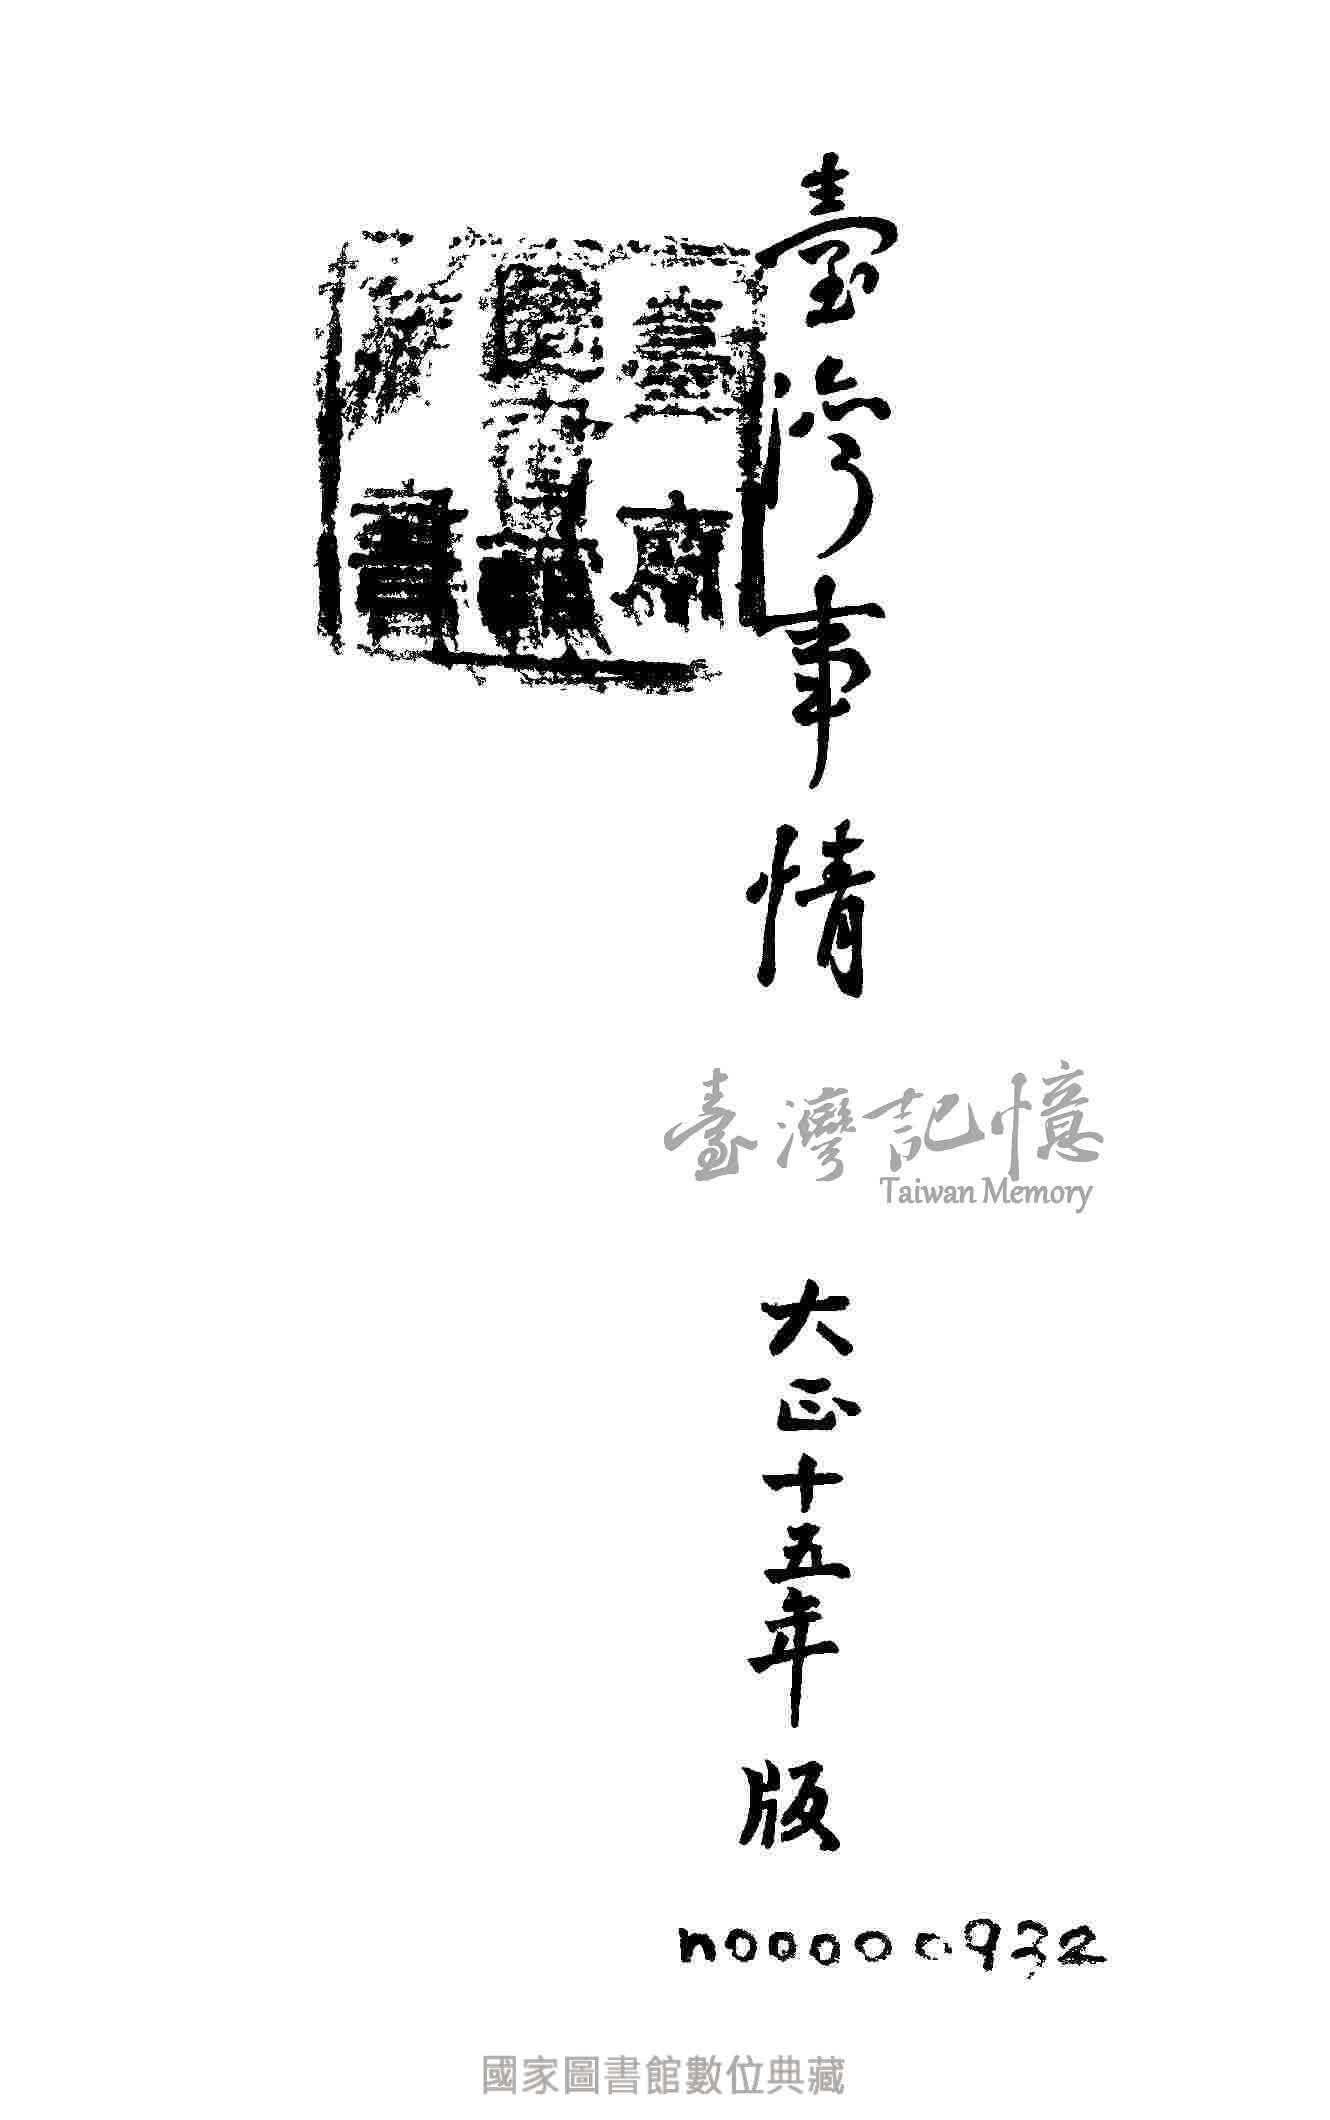 臺灣事情
臺灣記憶
Taiwan Memory
大正十五年版
n00000932
國家圖書館數位典藏